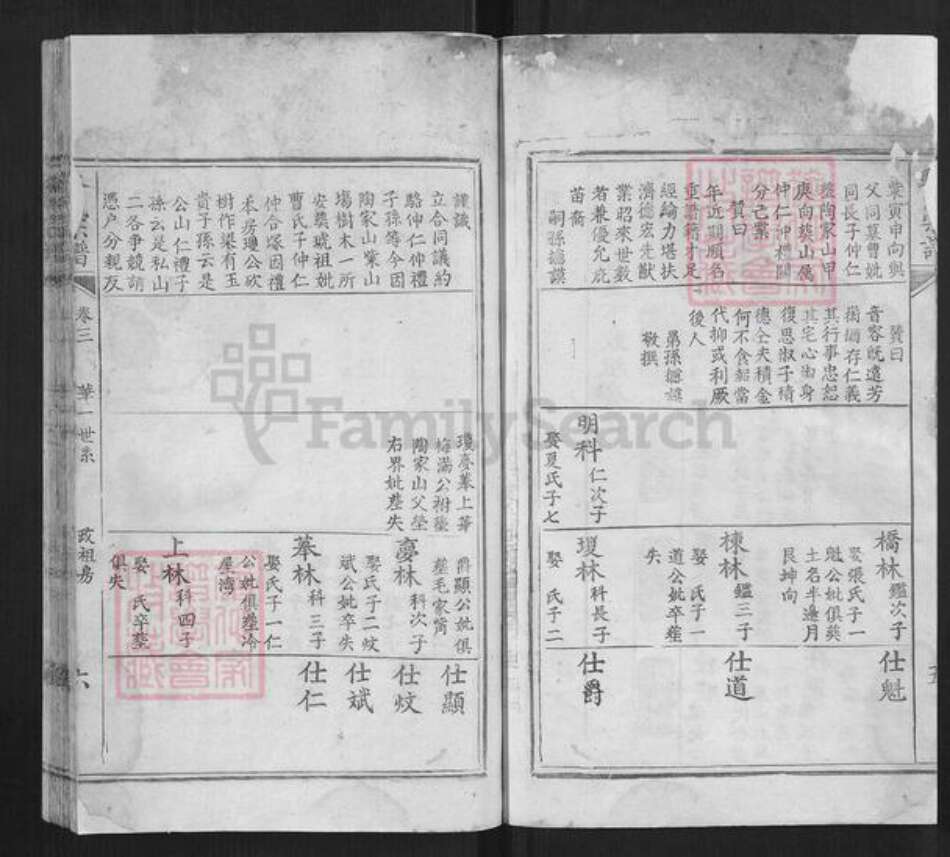 葉寅申向與
父同墓曹妣
同長子仲仁
塟陶家山甲
庚向葵山侯
仲仁仲禮閗
分己業
贊曰
年近期頤名
重薦紳才足
經綸力堪扶
濟德宏先猷
業昭來世數
者兼優允庇
苗裔
嗣孫德謨
贊曰
音容既遠芳
徽猶存仁義
其行事忠恕
其宅心淑身
復思淑子積
德仝夫積金
何不食報當
代抑或利厥
後人
敬撰
明科 仁次子
娶夏氏子七
橋林 鑑次子
娶張氏子一
魁公妣俱葵
土名半邊月
艮坤向
棟林 鑑三子
娶 氏子一
道公妣卒塟
失
瓊林 科長子
娶 氏子二
仕魁
仕道
仕爵
謹識
立合同議約
駱仲仁仲禮
子孫等今因
陶家山葉山
塲樹木一所
安奠琥祖妣
曹氏子仲仁
仲合塚因禮
本房瓊公砍
樹作梁有玉
貴子孫云是
公山仁禮子
孫云是私山
二各爭競請
憑户分親友
瓊臺墓上華
梅滿公祔塟
陶家山父塋
右界妣塟失
爵顯公妣俱
塟毛家嵛
臺林 科次子
娶氏子二蚊
斌公妣卒失
萃林 科三子
娶氏子一仁
公妣俱塟冷
屋灣
上林 科四子
娶 氏卒塟
俱失
仕顯
仕蚊
仕斌
仕仁
卷三
華一世系
政祖房
六
FamilySearch